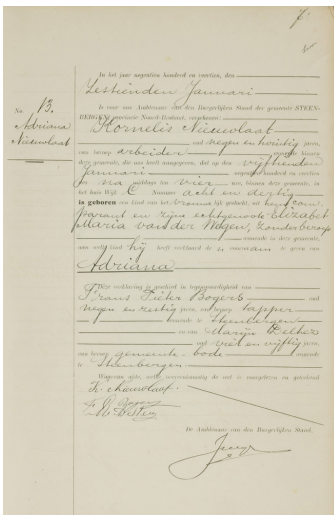 7
In het jaar negentien honderd en veertien, den
Zestienden Januari
is voor ons Ambtenaar van den Burgerlijken Stand der gemeente STEEN-
BERGEN, provincie Noord-Brabant, verschenen:
No. 13.
Adriana
Nieuwlaat
Kornelis Nieuwlaat
oud negen en twintig jaren,
van beroep arbeider wonende binnen
deze gemeente, die ons heeft aangegeven, dat op den vijftienden
Januari negentien honderd en veertien
des na middags ten vier ure, binnen deze gemeente, in
het huis Wijk C Nummer acht en dertig
is geboren een kind van het vrouwelijk geslacht, uit hem com-
parant en zijne echtgenoote Elizabet
Maria van der Wegen, zonder beroep
wonende in deze gemeente,
aan welk kind hij heeft verklaard de voornaam te geven van
Adriana
Deze verklaring is geschied in tegenwoordigheid van
Frans Pieter Bogers oud
negen en zestig jaren, van beroep tapper
wonende te Steenbergen
en van Marijn
oud viel en vijftig jaren,
van beroep gemeente bode wonende
te Steenbergen
Waarvan akte, welke overeenkomstig de wet is voorgelezen en geteekend
K. Nieuwlaat.
De Ambtenaar van den Burgerlijken Stand,